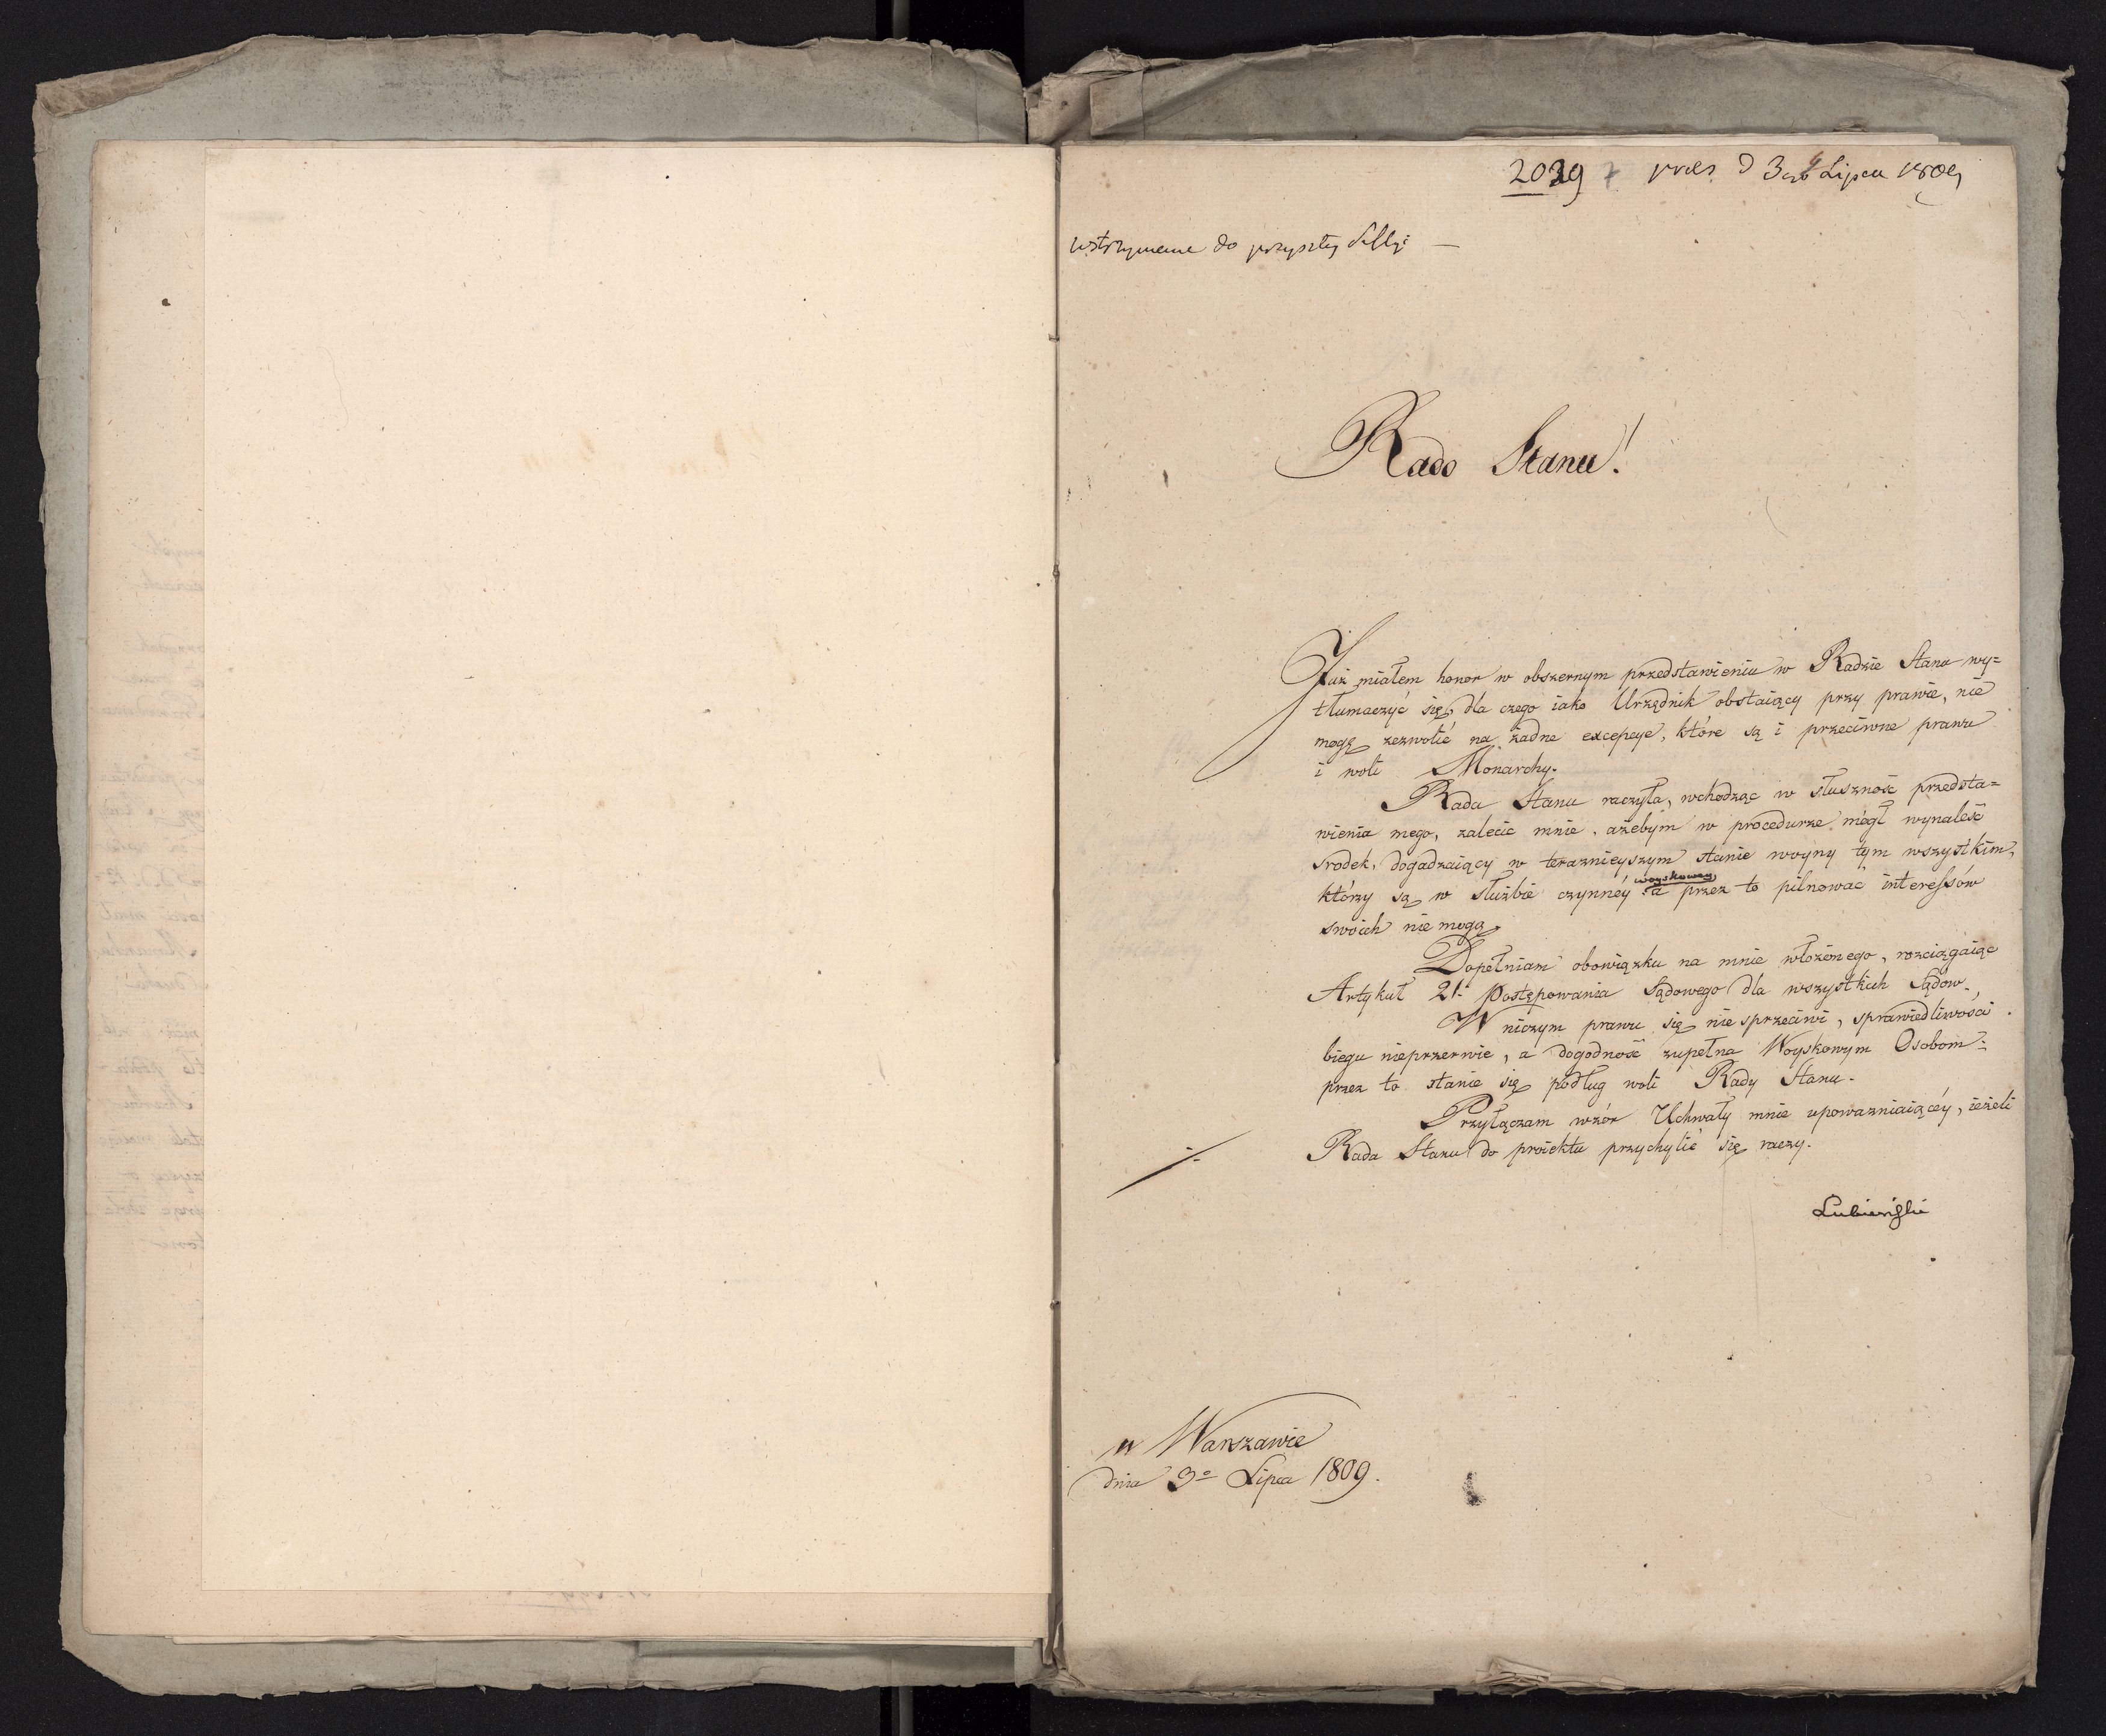 2039 pres d 3go Lipca 1809
wstrzymane do przyszłey Sessyi —
Rado Stanu!
Już miałem honor w obszernym przedstawieniu w Radzie Stanu wy=
tłumaczyć się, dla czego iako Urzędnik obstaiący przy prawie, nie
mogę zezwolić na żadne excepcye, które są i przeciwne prawu
i woli Monarchy.
Rada Stanu raczyła, wchodząc w słuszność przedsta=
wienia mego, zalecić mnie, ażebym w procedurze mógł wynaleść
srodek, dogadzaiący w teraznieyszym stanie woyny tym wszystkim,
woyskowey
którzy są w służbie czynnéy a przez to pilnować interessów
swoich nie mogą.
Dopełniam obowiązku na mnie włożonego, rozciągaiąc
Artykuł 21. Postępowania Sądowego dla wszystkich Sądow.
W niczym prawu się nie sprzeciwi, sprawiedliwości
biegu nieprzerwie, a dogodność zupełna Woyskowym Osobom
przez to stanie się podług woli Rady Stanu.
Przyłączam wzór Uchwały mnie upowazniaiącéy, ieżeli
Rada Stanu do proiektu przychylić się raczy.
Lubieński
w Warszawie
dnia 3o Lipca 1809.